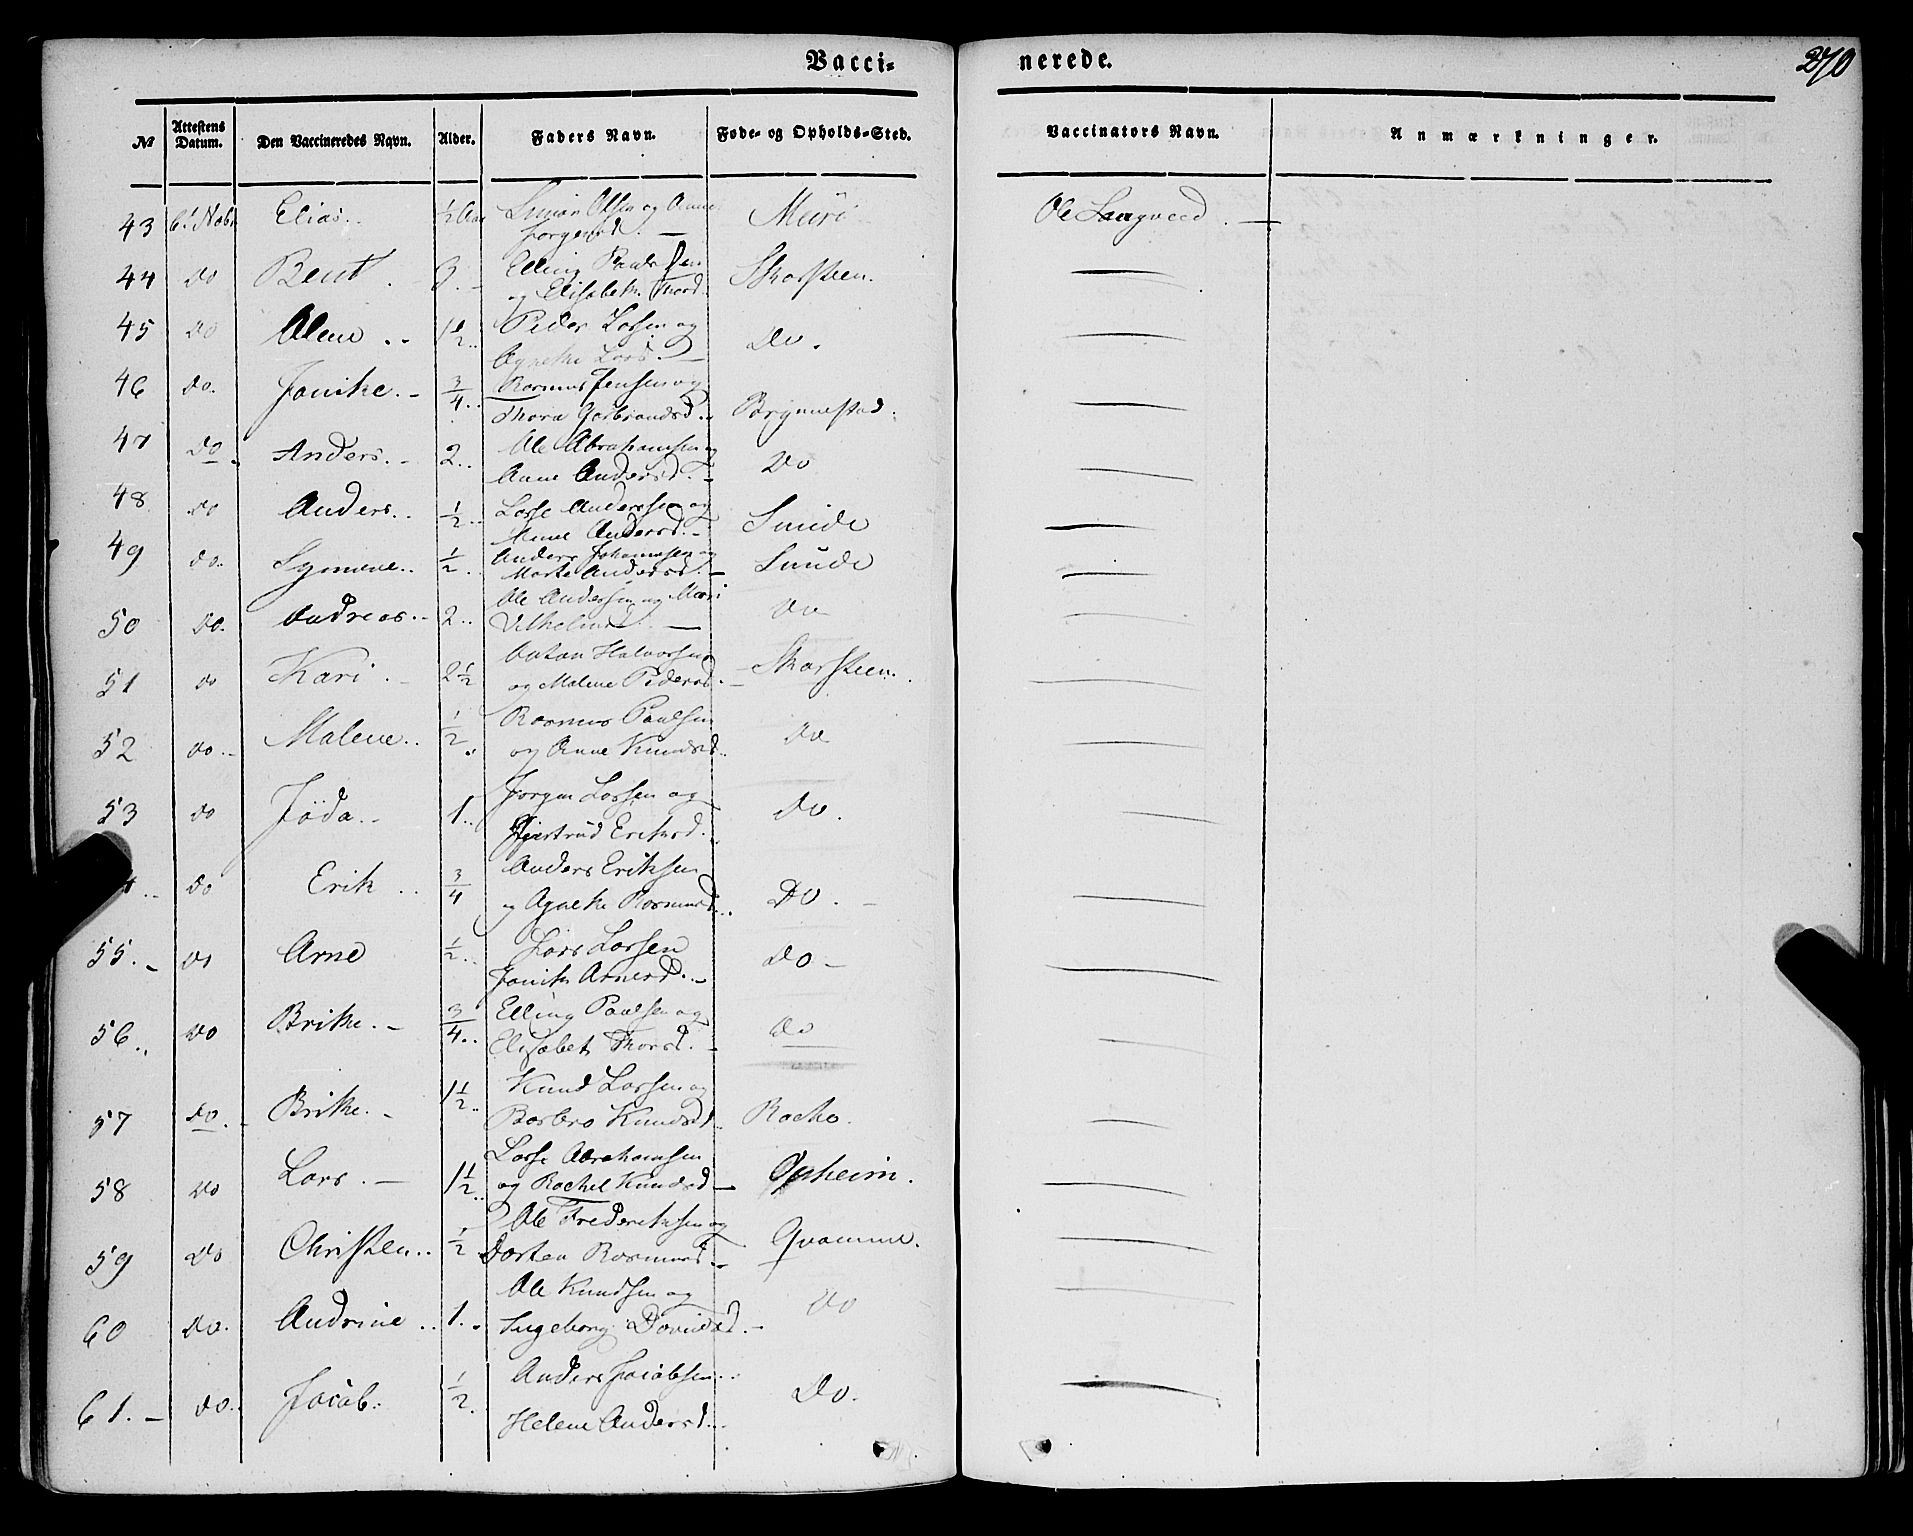 Vacci-
nerede.
270
№ Attestens Datum. Den Vaccineredes Navn. Alder. Faders Navn. Føde- og Opholds-Sted. Vaccinators Navn. Anmærkninger.
43 Elias. ½ Olsen og Anne Ole Langveed.
44 Do Bent. 3. Elling Paulsen Skarsteen.
og Elisabeth Thord.
45 Do Olene.. 1½.. Peder Larsen og Do.
Agnethe Lars.
46 Do. Janike.- ¾.. Rasmus Jensen og
Thora Gerbrandsd.. Brynnestad.
47 Do. Anders.- 2.. Ole Abrahamsen og Do
Anne Andersd.-
48 Do Anders.. ½.. Lasse Anderssen og Sunde
Anne Andersd.-
49 Do. Symene.. ½.. Anders Johannesen og Sunde
Marte Andersd.-
50 Do. Andreas.- 2.. Ole Andersen og Mari Do
51 Do Kari.- 2½ Anton Halvorsen Skarsteen.
og Malene Pedersd.
52 Do.. Malene.. ½. Rasmus Paulsen Do
og Anne Knudsd..
53 Do Joda.- 1.. Jørgen Larsen og Do.
Gjertrud Eriksd.
Do Erik.. ¾ Anders Eriksen
og Agnethe Rasmusd... Do.-
55.- Do Arne ½.. Lars Larsen Do-
Janike Arnesd.-
56.. Do Brithe.- ¾.. Elling Paulsen og Do
Elisabet Thorsd.-
57 Do.. Brithe.- 1½.. Knud Larsen og
Barbro Knudsd.. Racho.
58 Do Lars.- 1½.. Lasse Abrahamsen Opheim.
og Rachel Knudsd-
59 Do Christen.. ½ Ole Frederiksen og Qvamme.
Dorthea Rasmusd.-
60 Do. Andrine.. 1.. Ole Knudsen og Do
Ingeborg Davidsd.-
61.- Do.. Jacob. ½. Anders Jacobsen.. Do.
Helene Andersd..